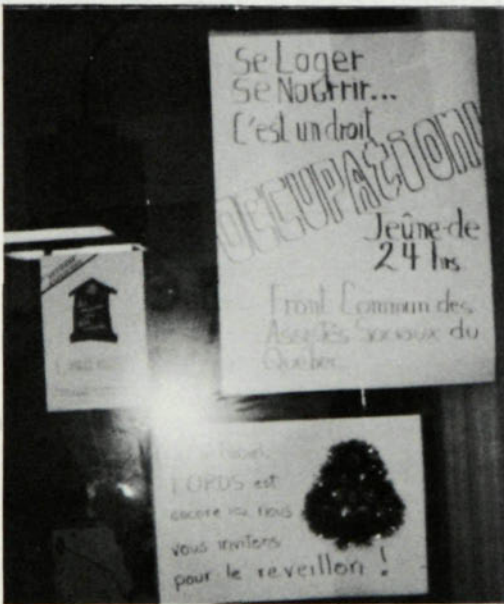 Se Loger
Se Nourrir...
C'est un droit
OCCUPATION!
Jeûne de
24 hrs
Front Commun des
Assistés Sociaux du
Québec
est
encore ici nous
vous invitons
pour le reveillon !